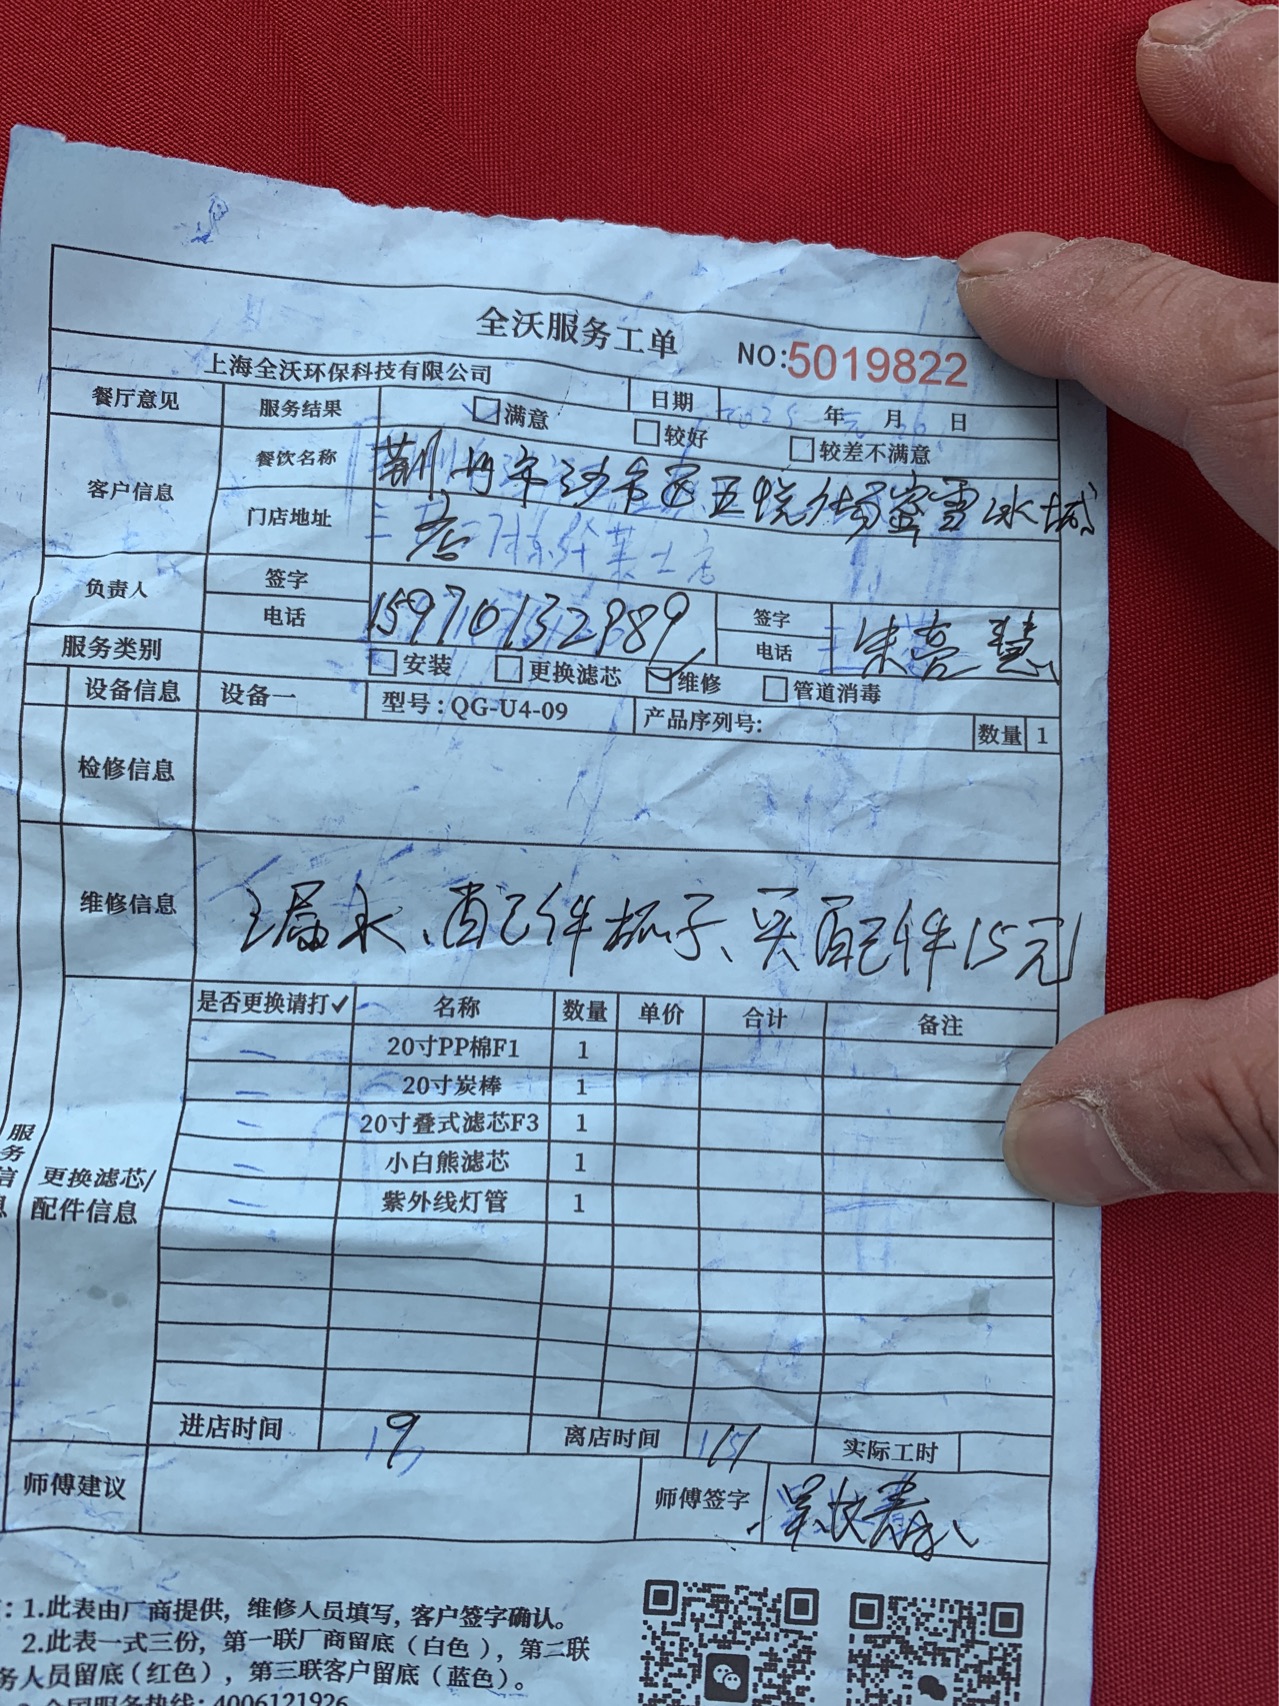 全沃服务工单 NO:5019822
上海全沃环保科技有限公司
餐厅意见 服务结果 满意 较好 较差不满意 日期 2025 年 元 月 日
客户信息 餐饮名称 荆州市沙市区五悦广场蜜雪冰城
门店地址 店
负责人 签字 签字 朱亮慧
电话 15970132989 电话
服务类别 安装 更换滤芯 维修 管道消毒
设备信息 设备一 型号:QG-U4-09 产品序列号: 数量 1
检修信息
维修信息 漏水、配件杯子、买配件15元
服务信息
更换滤芯/配件信息
是否更换请打✓ 名称 数量 单价 合计 备注
20寸PP棉F1 1
20寸炭棒 1
20寸叠式滤芯F3 1
小白熊滤芯 1
紫外线灯管 1
进店时间 9 离店时间 11 实际工时
师傅建议 师傅签字
:1.此表由厂商提供,维修人员填写,客户签字确认。
2.此表一式三份,第一联厂商留底(白色),第二联
务人员留底(红色),第三联客户留底(蓝色)。
全国服务热线:4006121926